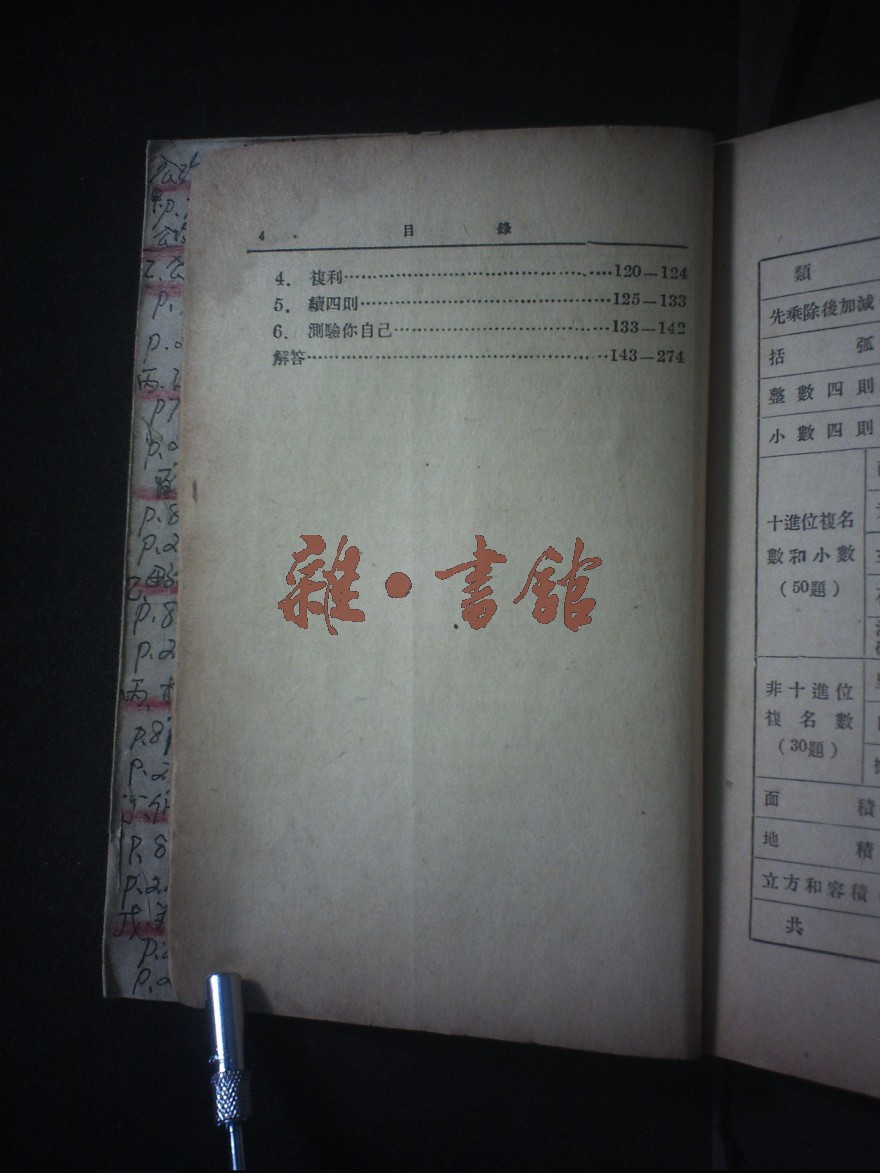 4 目錄
4. 複利……120—124
5. 續四則……125—133
6. 測驗你自己……133—142
解答……143—274
雜·書館
類
先乘除後加減
括弧
整數四則
小數四則
十進位複名
數和小數
(50題)
非十進位
複名數
(30題)
面積
地積
立方和容積
共
P.2
丙.
P.8
P.2
乙
P.8
P.2
丙
P.8
P.2
P.8
P.2
戊
P.2